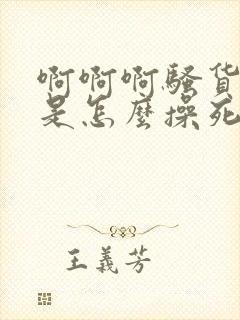 啊啊啊騷貨
是怎麼操死
王義芳